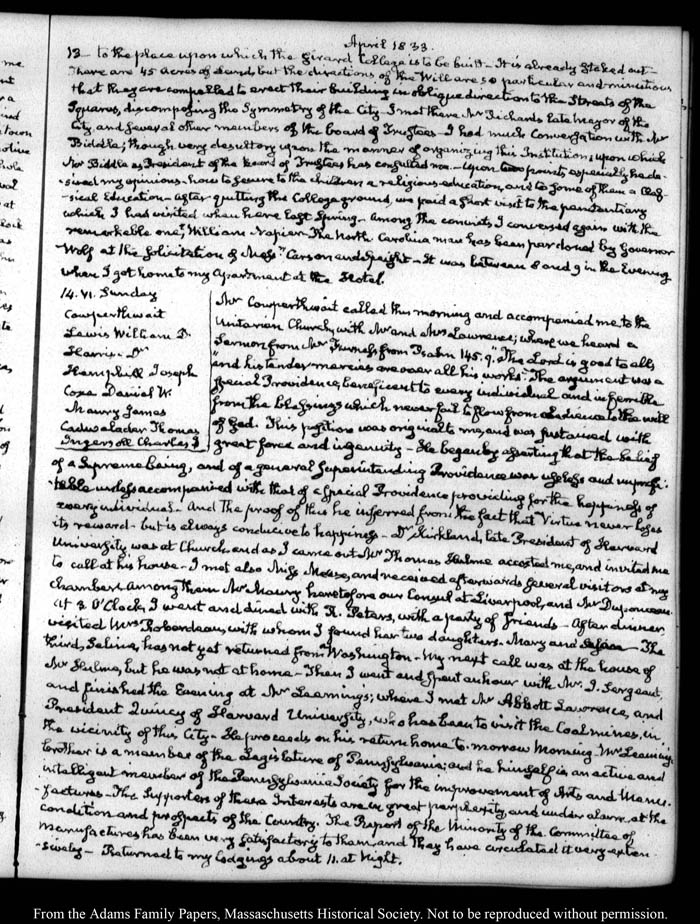 April 1833.
13 to the place upon which the Girard College is to be built – It is already staked out –
There are 45 Acres of Land, but the directions of the Will are so particular and minutious
that they are compelled to erect their building in oblique direction to the Streets of the
Squares, discomposing the Symmetry of the City – I met there Mr Richards late Mayor of the
City, and several other members of the board of Trustees – I had much Conversation with Mr
Biddle; though very desultory upon the manner of organizing this Institution; upon which
Mr Biddle as President of the board of Trustees has consulted me – Upon two points especially he de-
-sired my opinions – how to secure to the children a religious education, and to some of them a Clas-
-sical Education – after quitting the College ground, we paid a short visit to the penitentiary
which I had visited when here last Spring – Among the convicts I conversed again with the
remarkable one, William Napier – The North Carolina man has been pardoned by Governor
Wolf at the solicitation of Messrs Carson and Speight – It was between 8 and 9 in the Evening
when I got home to my apartment at the Hotel.
14. VI. Sunday
Cowperthwait
Lewis William D.
Harris – Dr
Hemphill Joseph
Coxe Daniel W.
Maury James
Cadwalader Thomas
Ingersoll Charles J
Mr Cowperthwait called this morning and accompanied me to the
Unitarian Church, with Mr and Mrs Lawrence; where we heard a
Sermon from Mr Furness, from Psalm 145. 9. "The Lord is good to all,
and his tender mercies are over all his works." The argument was a
special Providence, beneficent to every individual and inferrible
from the blessings which never fail to flow from obedience to the will
of God. This position was original to me, and was sustained with
great force and ingenuity – He began by asserting that the belief
of a Supreme being, and of a general Superintending Providence was useless and unprofi-
-table unless accompanied with that of a special Providence providing for the happiness of
every individual – And the proof of this he inferred from the fact that Virtue never loses
its reward – but is always conducive to happiness – Dr Kirkland, late President of Harvard
University was at Church, and as I came out Mr Thomas Hulme accosted me, and invited me
to call at his house – I met also Miss Mease, and received afterwards several visitors at my
chamber. Among them Mr Maury heretofore our Consul at Liverpool, and Mr Duponceau.
At 3 O'Clock, I went and dined with R. Peters, with a party of friends – After dinner,
visited Mrs Roberdeau, with whom I found her two daughters – Mary and – The
third, Selina, has not yet returned from Washington – My next call was at the house of
Mr Hulme, but he was not at home – Then I went and spent an hour with Mr J. Sergeant,
and finished the Evening at Mr Leamings; where I met Mr Abbott Lawrence, and
President Quincy of Harvard University, who has been to visit the Coal mines, in
the vicinity of this City – He proceeds on his return home to-morrow Morning – Mr Leaming's
brother is a member of the Legislature of Pennsylvania; and he himself is an active and
intelligent member of the Pennsylvania Society for the improvement of Arts and Manu-
-factures – The Supporters of these Interests are in great perplexity, and under alarm, at the
condition and prospects of the Country. The Report of the Minority of the Committee of
Manufactures has been very satisfactory to them, and they have circulated it very exten-
-sively – Returned to my lodgings about 11. at Night.
From the Adams Family Papers, Massachusetts Historical Society. Not to be reproduced without permission.